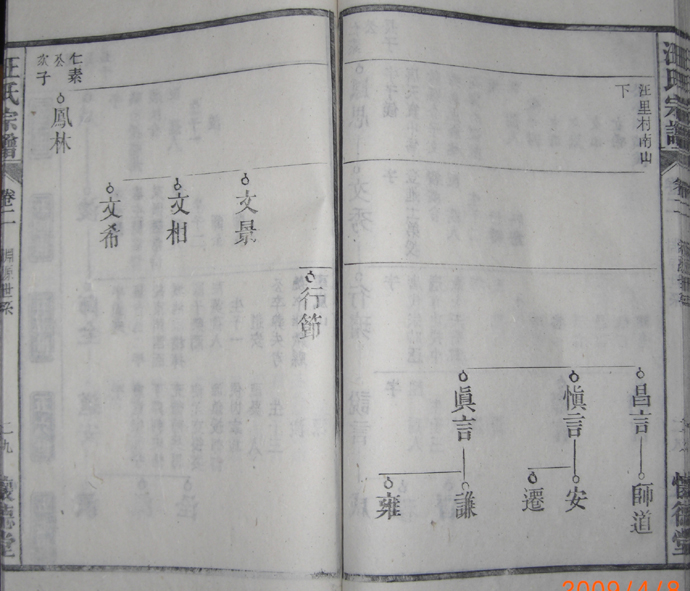 汪氏宗譜
卷二
懷德堂
汪里村南山
下
昌言
師道
愼言
安
遷
眞言
謙
雍
行節
文景
文相
文希
仁素
公
次子
鳳林
汪氏宗譜
卷二
懷德堂
2009/4/8